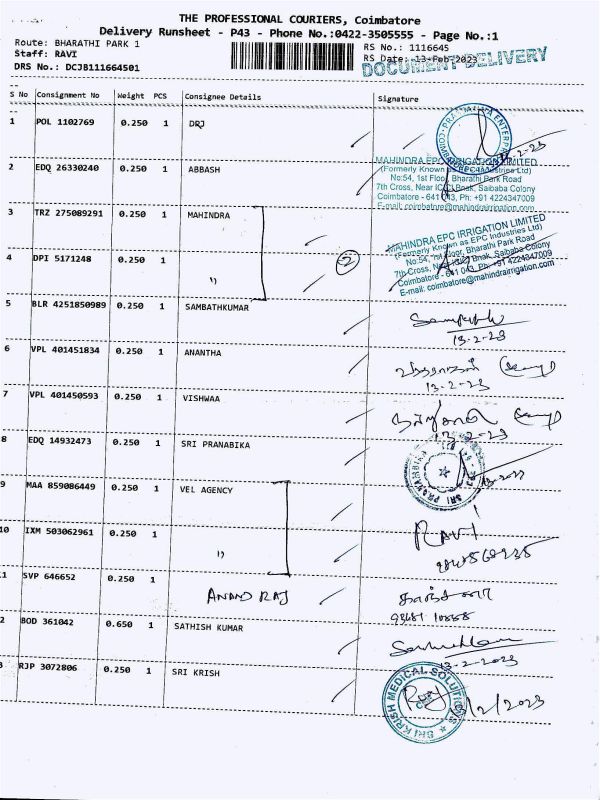 THE PROFESSIONAL COURIERS, Coimbatore
Delivery Runsheet - P43 - Phone No.:0422-3505555 - Page No.:1
Route: BHARATHI PARK 1
RS No.: 1116645
Staff: RAVI
RS Date: 13-Feb-2023
DRS No.: DCJB111664501
DOCUMENT DELIVERY
S No Consignment No Weight PCS Consignee Details Signature
1 POL 1102769 0.250 1 DRJ
2 EDQ 26330240 0.250 1 ABBASH
MAHINDRA EPC IRRIGATION LIMITED
(Formerly Known as EPC Industries Ltd)
No:54, 1st Floor, Bharathi Park Road
7th Cross, Near ICICI Bnak, Saibaba Colony
Coimbatore - 641 043, Ph: +91 4224347009
E-mail: coimbatore@mahindrairrigation.com
3 TRZ 275089291 0.250 1 MAHINDRA
4 DPI 5171248 0.250 1 "
2
MAHINDRA EPC IRRIGATION LIMITED
(Formerly Known as EPC Industries Ltd)
No:54, 1st Floor, Bharathi Park Road
7th Cross, Near ICICI Bnak, Saibaba Colony
Coimbatore - 641 043, Ph: +91 4224347009
E-mail: coimbatore@mahindrairrigation.com
5 BLR 4251850989 0.250 1 SAMBATHKUMAR
13-2-23
6 VPL 401451834 0.250 1 ANANTHA
13-2-23
7 VPL 401450593 0.250 1 VISHWAA
13-2-23
8 EDQ 14932473 0.250 1 SRI PRANABIKA
9 MAA 859086449 0.250 1 VEL AGENCY
RAVI
10 IXM 503062961 0.250 1 "
1 SVP 646652 0.250 1 ANAND RAJ
2 BOD 361042 0.650 1 SATHISH KUMAR
13-2-2023
3 RJP 3072806 0.250 1 SRI KRISH
SRI KRISH MEDICAL SOLUTIONS
/2/2023